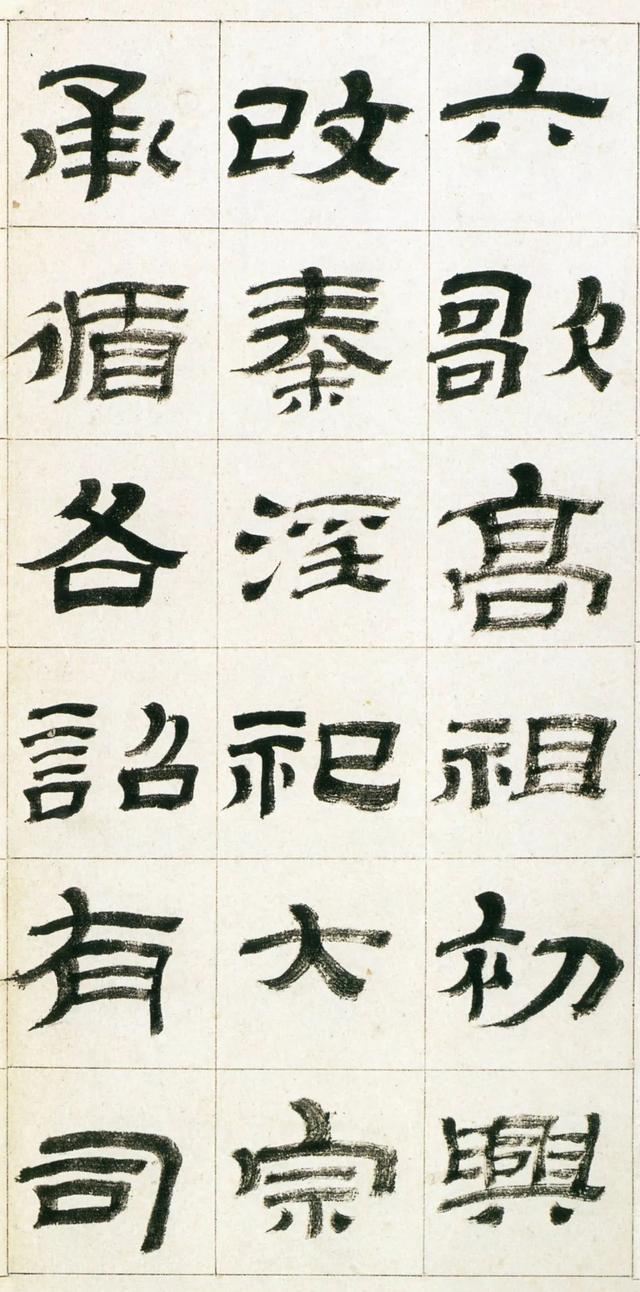 六歌高祖初興
改秦淫祀大宗
承循各詔有司